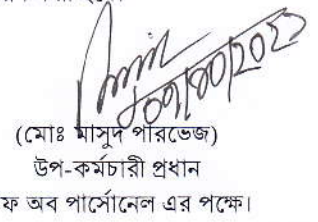 ০৭/১০/২০২১
(মোঃ মাসুদ পারভেজ)
উপ-কর্মচারী প্রধান
ফ অব পার্সোনেল এর পক্ষে।